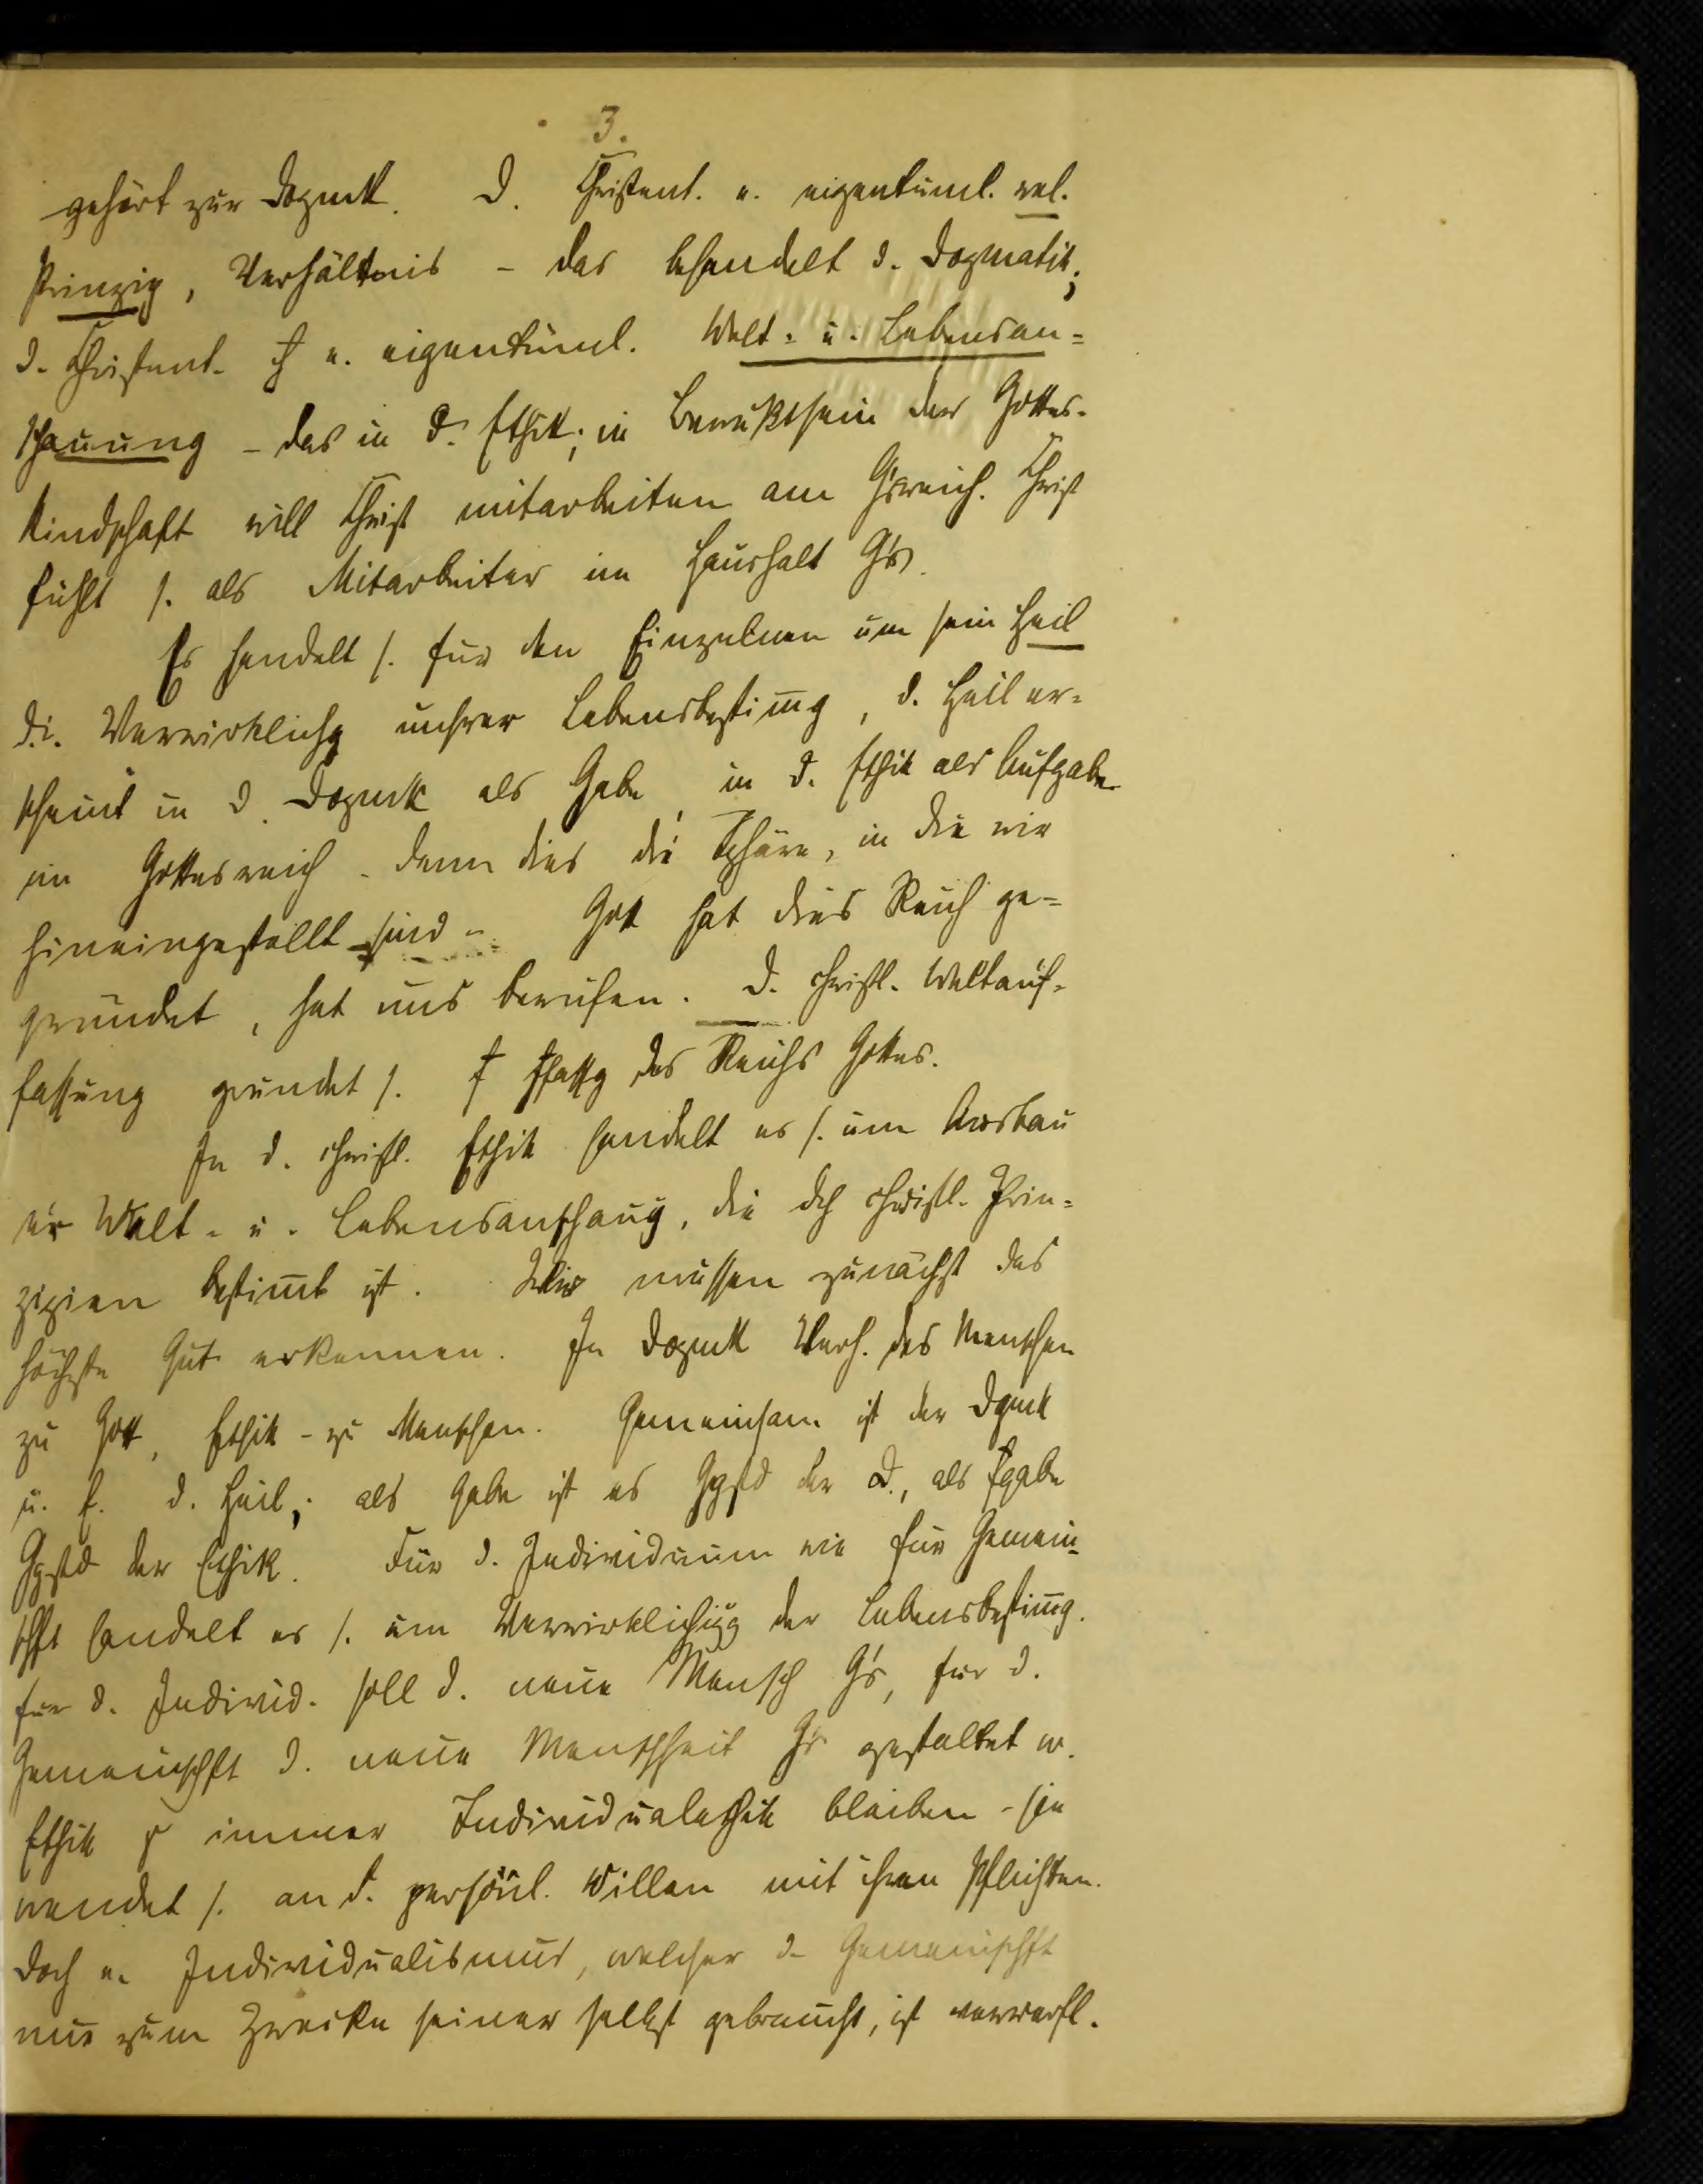 3.
gehört zur Dogmtk. D. Christent. e. eigentüml. rel.
Prinzip, Verhältnis - das behandelt d. Dogmatik;
d. Christent. e. eigentüml. Welt- u. Lebensan=
schauung - das in d. Ethik; in Bewußtsein der Gottes-
kindschaft will Christ mitarbeiten am G'sreich. Christ
fühlt s. als Mitarbeiter im Haushalt G's.
Es handelt s. für den Einzelnen um sein Heil
d.i. Verwirklichg unsrer Lebensbestim̄g, d. Heil er=
scheint in d. Dogmtk als Gabe, in d. Ethik als Aufgabe
im Gottesreich - denn dies die Sphäre, in die wir
hineingestellt sind -. Gott hat dies Reich ge=
gründet, hat uns berufen. D. christl. Weltauf-
fassung gründet s. des Reichs Gottes.
In d. christl. Ethik handelt es s. um Ausbau
er Welt- u. Lebensanschaug, die dch christl. Prin=
zipien bestim̄t ist. Wir müssen zunächst das
höchste Gut erkennen. In Dogmtk Verh. des Menschen
zu Gott, Ethik - zu Menschen. Gemeinsam ist der Dgmtk
u. E. d. Heil; als Gabe ist es Ggstd der D., als
Ggstd der Ethik. Für d. Individuum wie für Gemein-
schft handelt es s. um Verwirklichug der Lebensbestim̄g.
für d. Individ. soll d. neue Mensch G's, für d.
Gemeinschft d. neue Menschheit G's gestaltet w.
Ethik immer Individualethik bleiben - sie
wendet s. an d. persönl. Willen mit ihren Pflichten.
doch e. Individualismus, welcher d. Gemeinschft
nur zum Zwecke seiner selbst gebraucht, ist verwerfl.